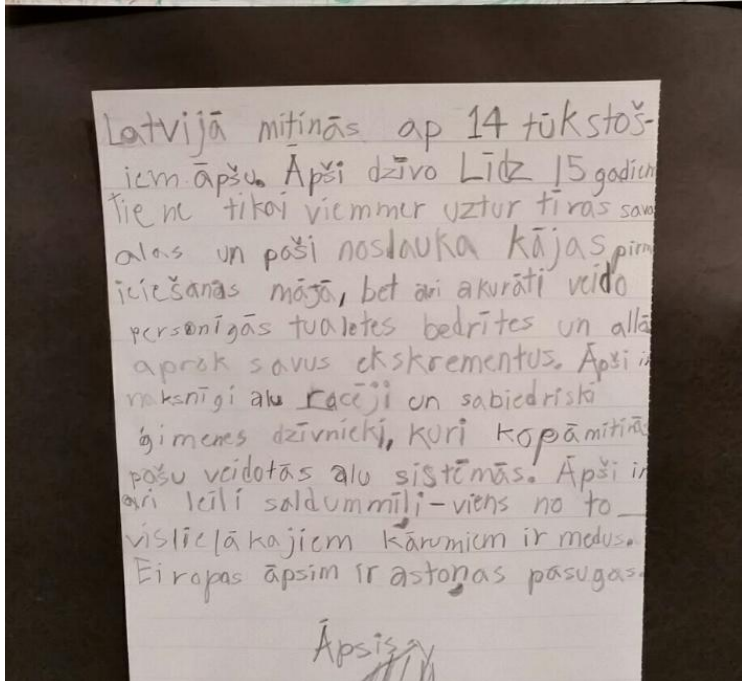 Latvijā mitinās ap 14 tūkstoš-
iem āpšu. Āpši dzīvo Līdz 15 gadiem
tie ne tikai viemmer uztur tīras sava
alas un paši noslauka kājas pirm
iciešanas mājā, bet ari akurāti veido
personīgās tualetes bedrītes un allā
aprok savus ekskrementus. Āpši ir
naksnīgi alu racēji un sabiedriski
ģimenes dzīvnieki, kuri kopāmitinā
pašu veidotās alu sistēmās. Āpši ir
ari leili saldummīļi-viens no to
vislielākajiem kārumiem ir medus.
Eiropas āpsim ir astoņas pasugas.
Āpsis